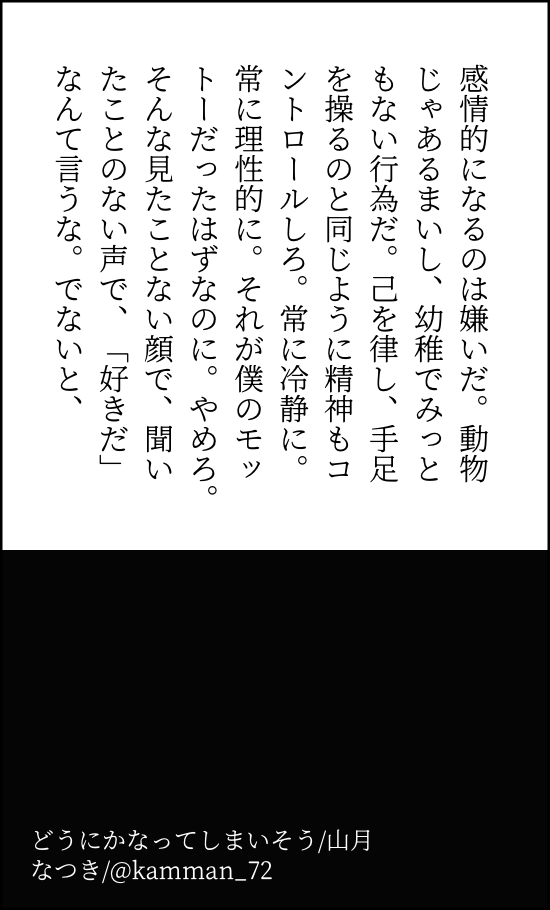 感情的になるのは嫌いだ。動物
じゃあるまいし、幼稚でみっと
もない行為だ。己を律し、手足
を操るのと同じように精神もコ
ントロールしろ。常に冷静に。
常に理性的に。それが僕のモッ
トーだったはずなのに。やめろ。
そんな見たことない顔で、聞い
たことのない声で、「好きだ」
なんて言うな。でないと、
どうにかなってしまいそう/山月
なつき/@kamman_72